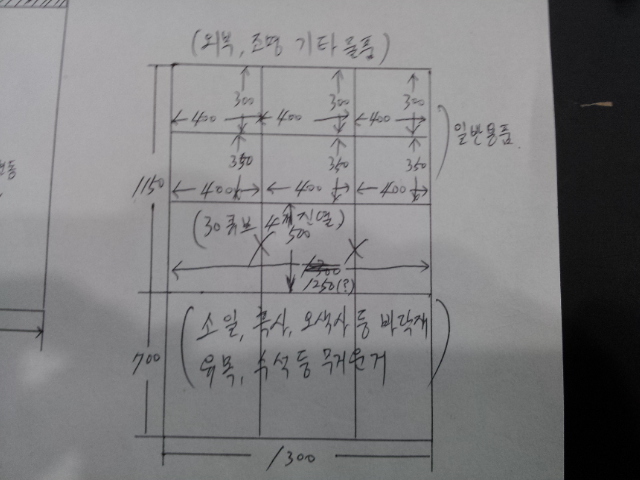 (외부, 조명 기타 물품)
300 300 300
400 400 400
일반물품.
350 350 350
1150
400 400 400
(30큐브 4개 진열)
500
X X
1250(?)
(소일, 흑사, 오색사 등 바닥재
유목, 수석 등 무거운거)
700
1300